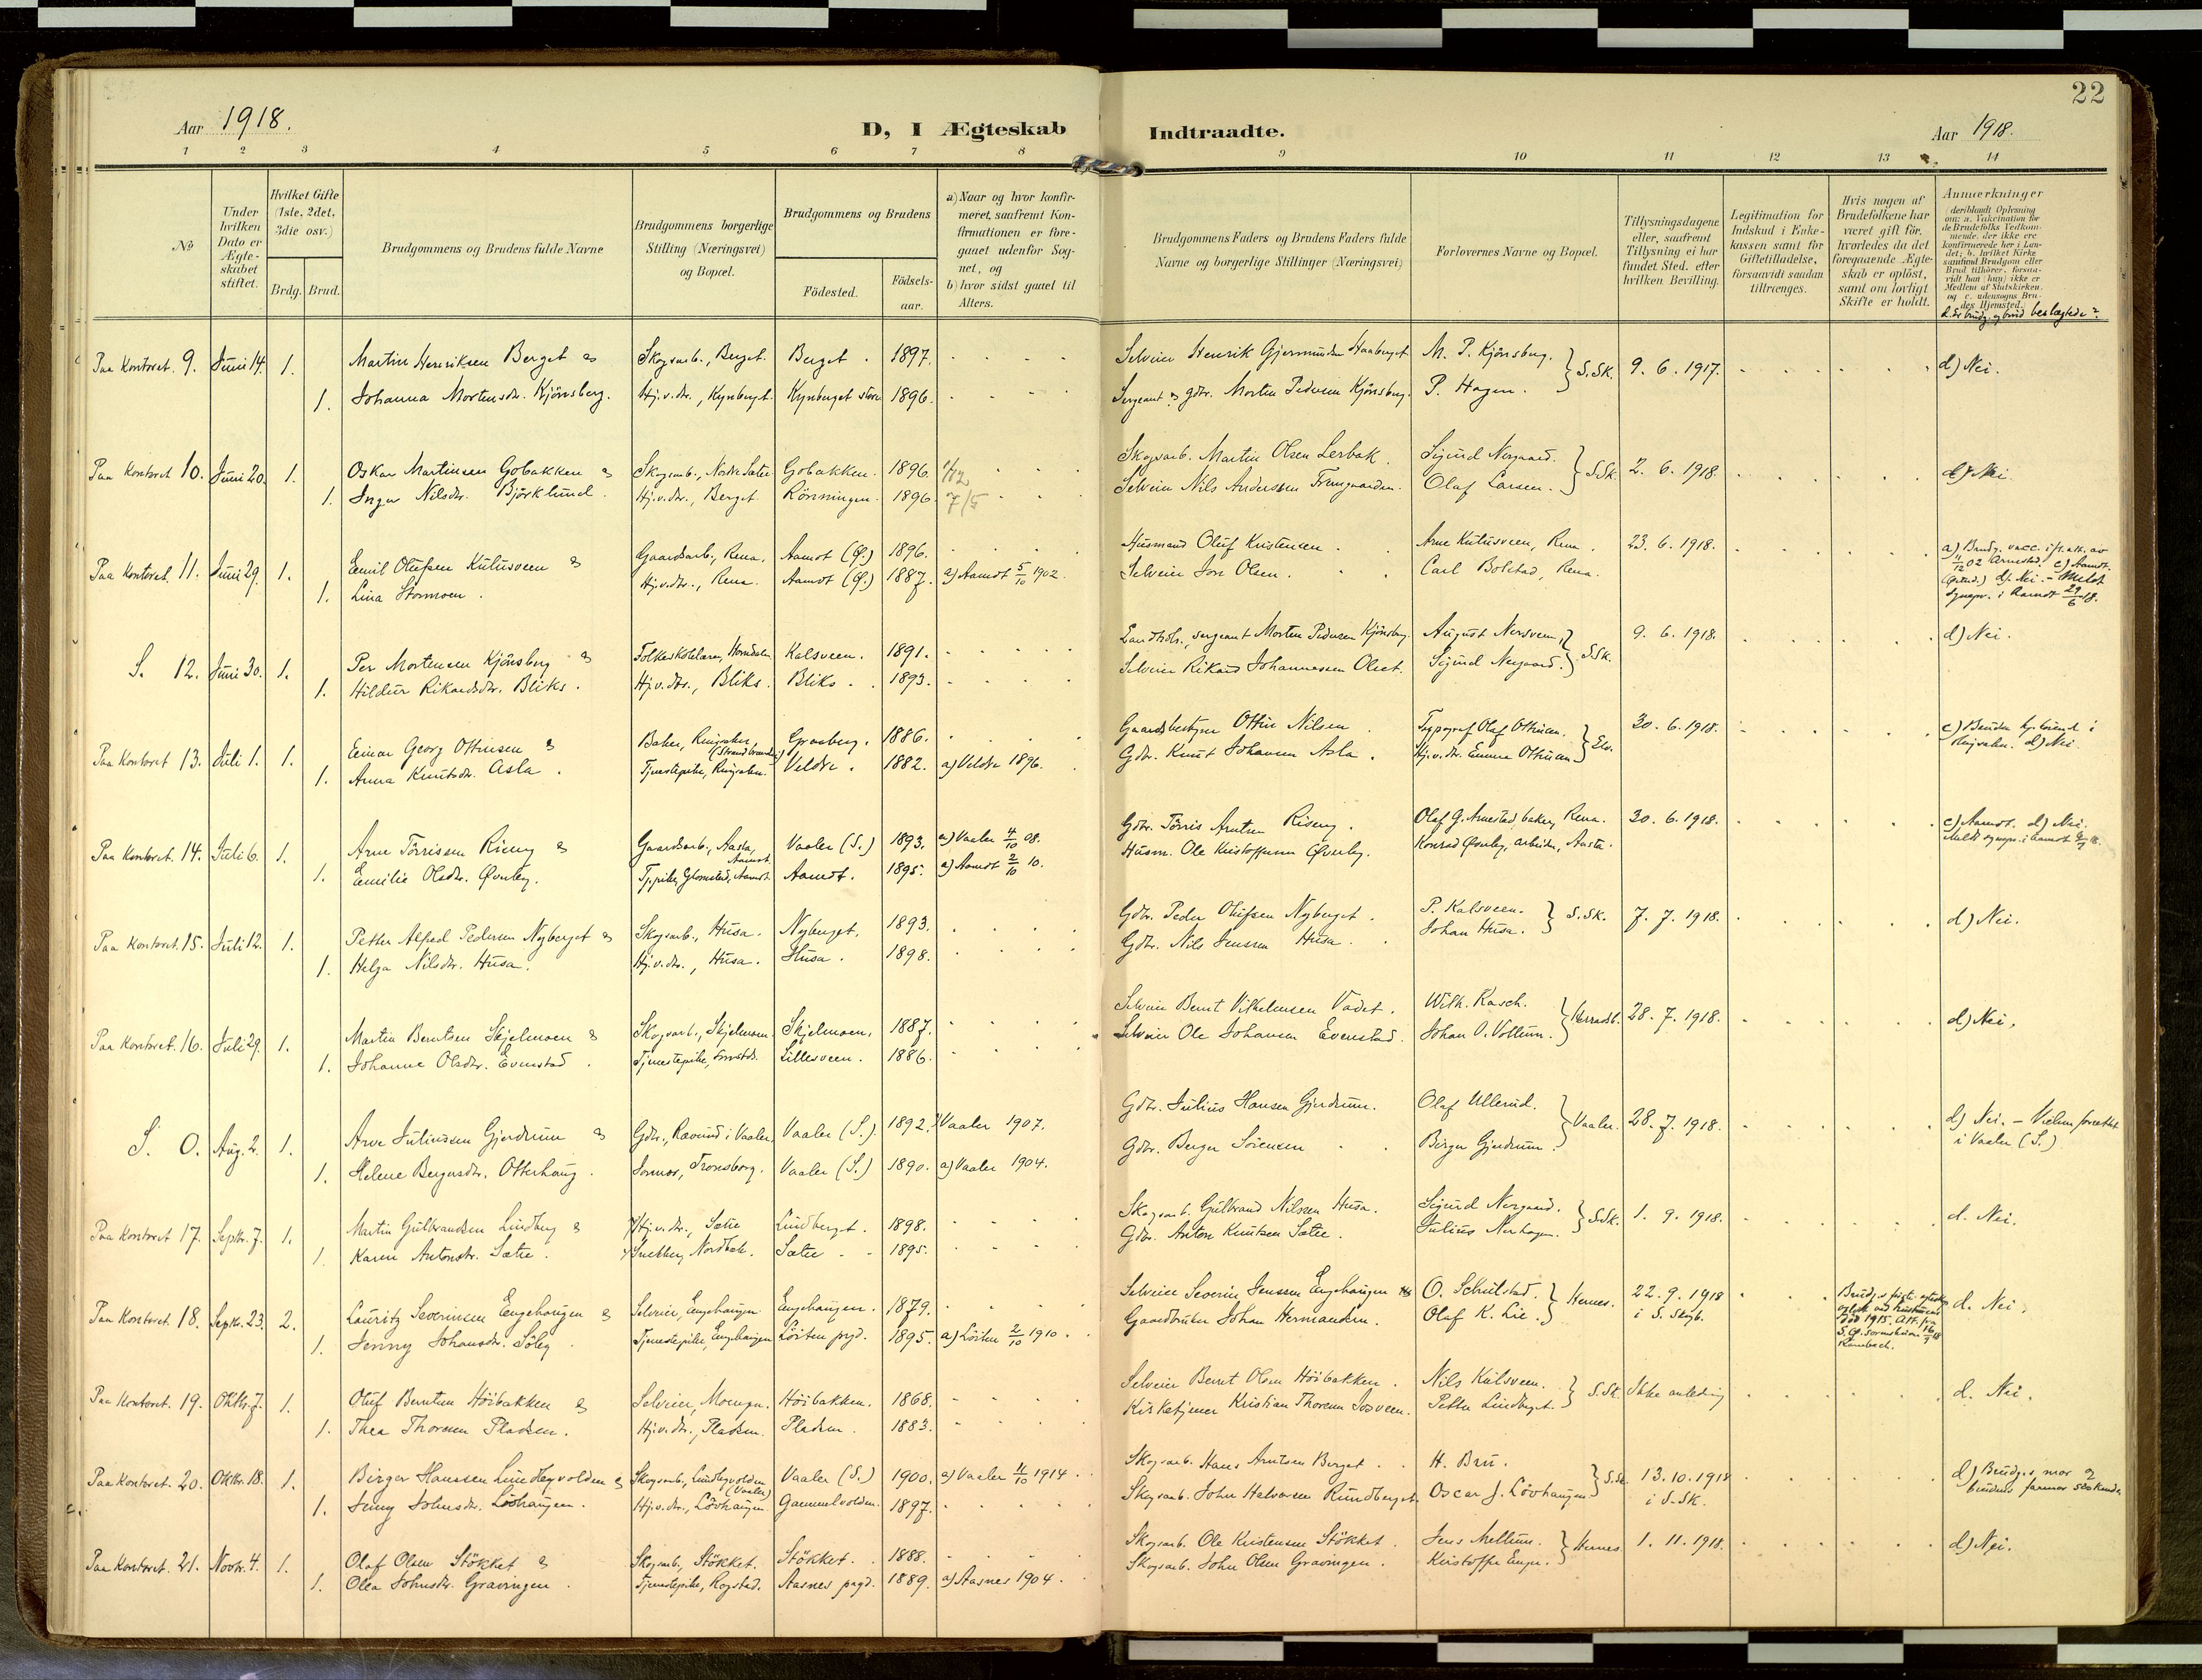 22
Aar 1918.
D, I Ægteskab Indtraadte.
Aar 1918.
1 2 3 4 5 6 7 8 9 10 11 12 13 14
No
Under hvilken Dato er Ægteskabet stiftet.
Hvilket Gifte (1ste, 2det, 3die osv.)
Brdg. Brud.
Brudgommens og Brudens fulde Navne
Brudgommens borgerlige Stilling (Næringsvei) og Bopæl.
Brudgommens og Brudens
Fødested. Fødsels-aar.
a) Naar og hvor konfirmeret, saafremt Konfirmationen er foregaaet udenfor Sognet, og
b) hvor sidst gaaet til Alters.
Brudgommens Faders og Brudens Faders fulde Navne og borgerlige Stillinger (Næringsvei)
Forlovernes Navne og Bopæl.
Tillysningsdagene eller, saafremt Tillysning ei har fundet Sted, efter hvilken Bevilling.
Legitimation for Indskud i Enkekassen samt for Giftetilladelse, forsaavidt saadan tiltrænges.
Hvis nogen af Brudefolkene har været gift før, hvorledes da det foregaaende Ægteskab er opløst, samt om lovligt Skifte er holdt.
Anmærkninger (deriblandt Oplysning om: a. Vakcination for de Brudefolks Vedkommende, der ikke ere konfirmerede her i Landet; b. hvilket Kirkesamfund Brudgom eller Brud tilhører, forsaavidt han (hun) ikke er Medlem af Statskirken, og c. udensogns Brudes Hjemsted.
d. Er brudg. og brud beslægtede?
Paa Kontoret. 9. Juni 14. 1. Martin Henriksen Berget & Skogsarb., Berget. Berget. 1897. Selveier Henrik Gjermundsen Haaberget M. P. Kjönsberg. } S.Sk. 9. 6. 1917. d) Nei.
1. Johanna Mortensdr. Kjönsberg. Hj.v.dr., Kynberget. Kynberget store 1896. Sergeant & gdbr. Morten Pedersen Kjönsberg. P. Hagen.
Paa Kontoret 10. Juni 20. 1. Oskar Martinsen Gobakken & Skogsarb., Nordre Sætre Gobakken. 1896. Skogsarb. Martin Olsen Lerbak. Sigurd Nergaard. } S.Sk. 2. 6. 1918. d) Nei.
1. Inga Nilsdr. Björklund. Hj.v.dr., Berget Rönningen. 1896. 7/5 Selveier Nils Anderssen Fremgaarden. Olaf Larsen.
Paa Kontoret. 11. Juni 29. 1. Emil Olufsen Kulusveen & Gaardsarb., Rena. Aamot (Ø.) 1896. Husmand Oluf Kristensen. Arne Kulusveen, Rena. 23. 6. 1918. a) Brudg. vacc. ifl. att. av 11/12 02 Arnestad. c) Aamot.
1. Lina Stormoen. Hj.v.dr., Rena. Aamot (Ø.) 1887. a) Aamot 5/10 1902. Selveier Jon Olsen. Carl Bolstad, Rena. d) Nei. - Meldt sognepr. i Aamot 29/6 18.
S. 12. Juni 30. 1. Per Mortensen Kjönsberg & Folkeskolelærer, Horndalen Kalsveen. 1891. Landhdlr., sergeant Morten Pedersen Kjönsberg. August Nersveen, } S.Sk. 9. 6. 1918. d) Nei.
1. Hildur Rikardsdr. Bliks. Hj.v.dr., Bliks. Bliks. 1893. Selveier Rikard Johannessen Olset. Sigurd Nergaard.
Paa Kontoret 13. Juli 1. 1. Einar Georg Ottinsen & Baker, Ringsaker, Granberg. 1886. Gaardsbestyrer Ottin Nilsen. Typograf Olaf Ottinsen. } Elv. 30. 6. 1918. c) Bruden hj.börend i Ringsaker. d) Nei.
1. Anna Knutsdr. Asla. Tjenestepike, Ringsaker. Veldre. 1882. a) Veldre 1896. Gdbr. Knut Johansen Asla. Hj.v.dr. Emma Ottinsen.
Paa Kontoret. 14. Juli 6. 1. Arne Törrisen Riseng & Gaardsarb., Aasta, Aamot Vaaler (S.) 1893. a) Vaaler 4/10 08. Gdbr. Törris Arntsen Riseng. Olaf G. Arnestad, baker, Rena. 30. 6. 1918. c) Aamot. d) Nei.
1. Emilie Olsdr. Øverby. Tj.pike, Glomstad, Aamot Aamot. 1895. a) Aamot 2/10 10. Husm. Ole Kristoffersen Øverby. Konrad Øverby, arbeider, Aasta. Meldt sognepr. i Aamot
Paa Kontoret. 15. Juli 12. 1. Petter Alfred Pedersen Nyberget & Skogsarb., Husa. Nyberget. 1893. Gdbr. Peder Olufsen Nyberget. P. Kalsveen. } S.Sk. 7. 7. 1918. d) Nei.
1. Helga Nilsdr. Husa. Hj.v.dr., Husa. Husa. 1898. Gdbr. Nils Jenssen Husa. Johan Husa.
Paa Kontoret. 16. Juli 29. 1. Martin Berntsen Skjelmoen & Skogsarb., Skjelmoen. Skjelmoen. 1887. Selveier Bernt Vilhelmsen Vadet. Wilh. Kasch. } Herradsb. 28. 7. 1918. d) Nei.
1. Johanne Olsdr. Evenstad. Tjenestepike, Lillesveen. 1886. Selveier Ole Johansen Evenstad. Johan O. Vollum.
S. 0. Aug. 2. 1. Arve Juliussen Gjerdrum & Gdbr., Ravund i Vaaler. Vaaler (S.). 1892. a) Vaaler 1907. Gdbr. Julius Hansen Gjerdrum. Olaf Ullerud. } Vaaler. 28. 7. 1918. d) Nei. - Vielsen forrettet i Vaaler (S.)
1. Helene Bergersdr. Otterhaug. Jormor, Tronsborg. Vaaler (S.) 1890. a) Vaaler 1904. Gdbr. Berger Sörensen. Birger Gjerdrum.
Paa Kontoret 17. Septr. 7. 1. Martin Gulbrandsen Lindberg & Hj.v.dr., Sætre Lindberget. 1898. Skogsarb. Gulbrand Nilssen Husa. Sigurd Nergaard. } S.Sk. 1. 9. 1918. d. Nei.
1. Karen Antonsdr. Sætre. Snekker, Nordbek. Sætre. 1895. Gdbr. Anton Knutsen Sætre. Julius Nerhagen.
Paa Kontoret. 18. Septr. 23. 2. Lauritz Severinsen Engehaugen & Selveier, Engehaugen. Engehaugen. 1879. Selveier Severin Jenssen Engehaugen O. Schulstad. } Hernes. 22. 9. 1918 i S. Skgb. d. Nei.
1. Jenny Johansdr. Söleg. Tjenestepike, Engehaugen Löiten pgd. 1895. a) Löiten 2/10 1910. Gaardbruker Johan Hermandsen. Olaf K. Lie.
Paa Kontoret. 19. Oktbr. 7. 1. Oluf Berntsen Höibakken & Selveier, Moengen. Höibakken. 1868. Selveier Bernt Olsen Höibakken. Nils Kulsveen. } S.Sk. Ikke anledning d. Nei.
1. Thea Thoresen Pladsen. Hj.v.dr., Pladsen. Pladsen. 1883. Kirketjener Kristian Thoresen Josveen. Petter Lindberget.
Paa Kontoret. 20. Oktbr. 18. 1. Birger Hanssen Lindbergvolden & Skogsarb., Lindbergvolden (Vaaler) Vaaler (S.) 1900. a) Vaaler 4/10 1914. Skogsarb. Hans Arntsen Berget. H. Bru. } S.Sk. 13. 10. 1918 i S.Sk. d) Brudg.s mor & brudens farmor søskende.
1. Jenny Johnsdr. Lövhaugen. Hj.v.dr., Lövhaugen Gammelvolden. 1897. Skogsarb. John Halvorsen Rundberget. Oscar J. Lövhaugen.
Paa Kontoret. 21. Novbr. 4. 1. Olaf Olsen Stökket & Skogsarb., Stökket. Stökket. 1888. Skogsarb. Ole Kristensen Stökket. Jens Mellum. } Hernes 1. 11. 1918. d) Nei.
1. Olea Johnsdr. Gravingen. Tjenestepike, Rogstad. Aasnes pgd. 1889. a) Aasnes 1904. Skogsarb. John Olsen Gravingen. Kristoffer Engen.